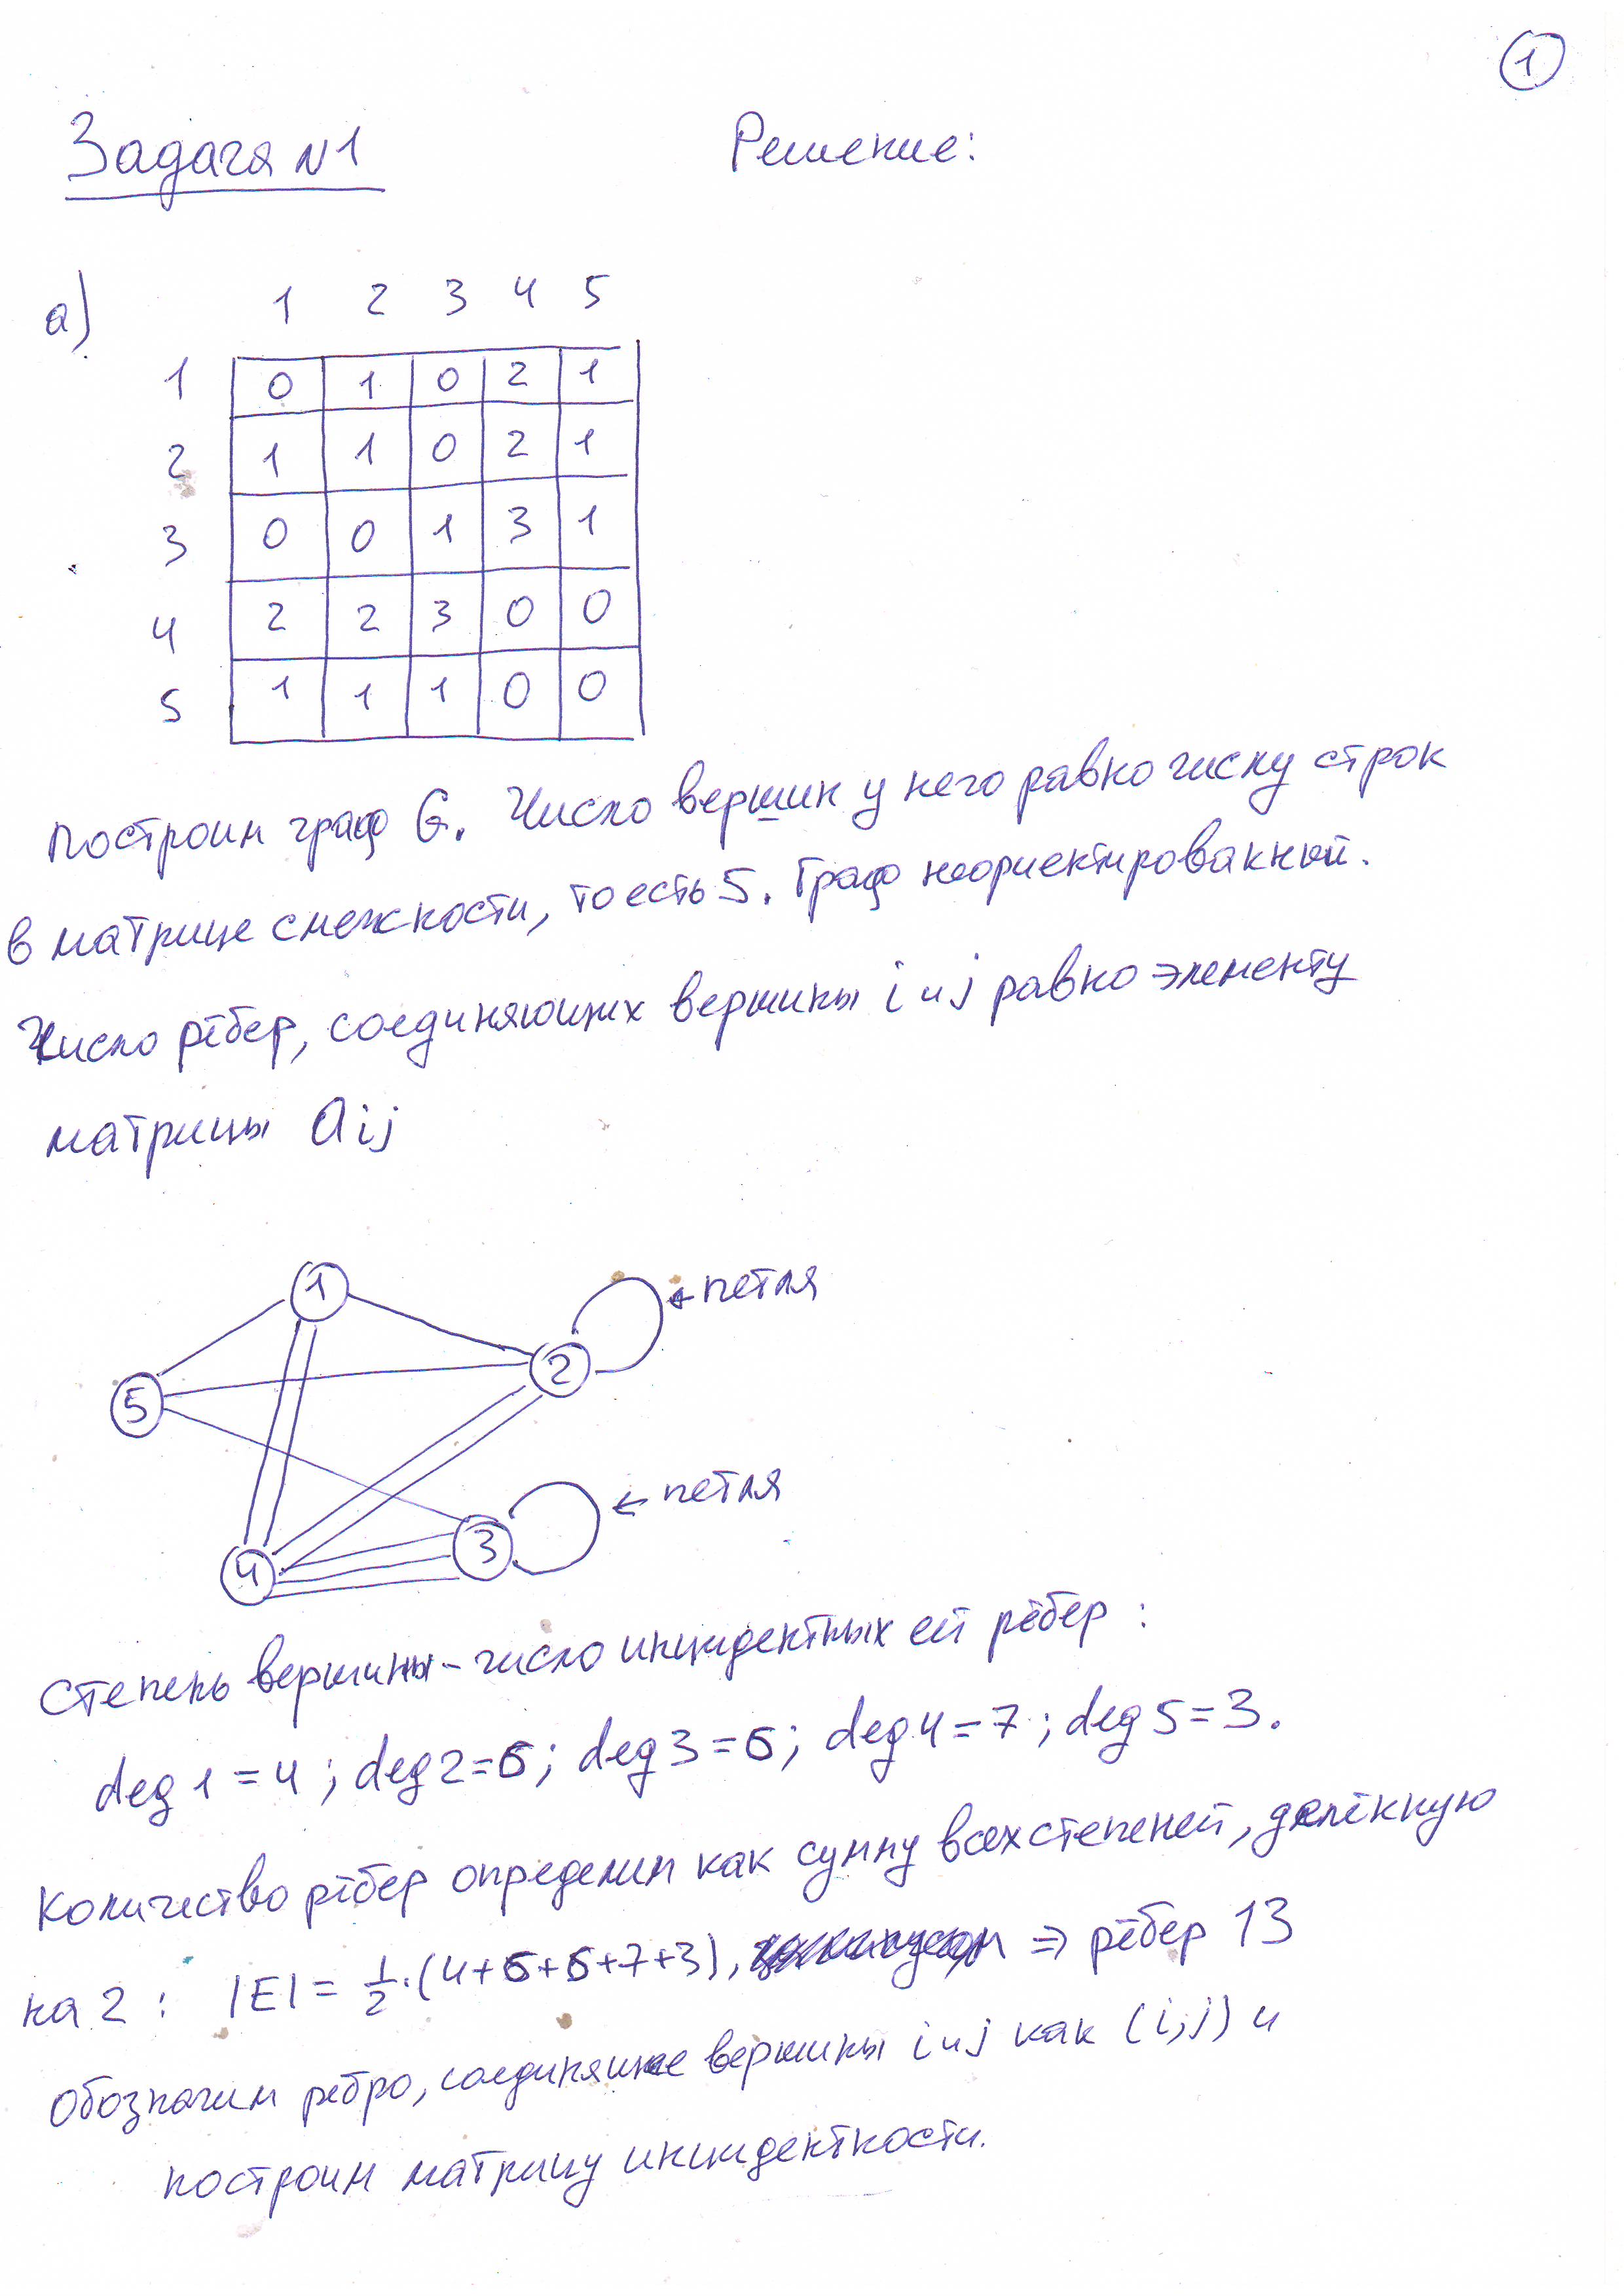 1
Задача №1 Решение:
а) 1 2 3 4 5
1 0 1 0 2 1
2 1 1 0 2 1
3 0 0 1 3 1
4 2 2 3 0 0
5 1 1 1 0 0
Построим граф G. Число вершин у него равно числу строк
в матрице смежности, то есть 5. Граф неориентированный.
Число рёбер, соединяющих вершины i и j равно элементу
матрицы aij
1
← петля
2
5
← петля
3
4
Степень вершины - число инцидентных ей рёбер:
deg 1 = 4; deg 2 = 6; deg 3 = 6; deg 4 = 7; deg 5 = 3.
Количество рёбер определим как сумму всех степеней, делённую
на 2: |E| = 1/2·(4+6+6+7+3), ⇒ рёбер 13
Обозначим ребро, вершины i и j как (i,j) и
построим матрицу инцидентности.